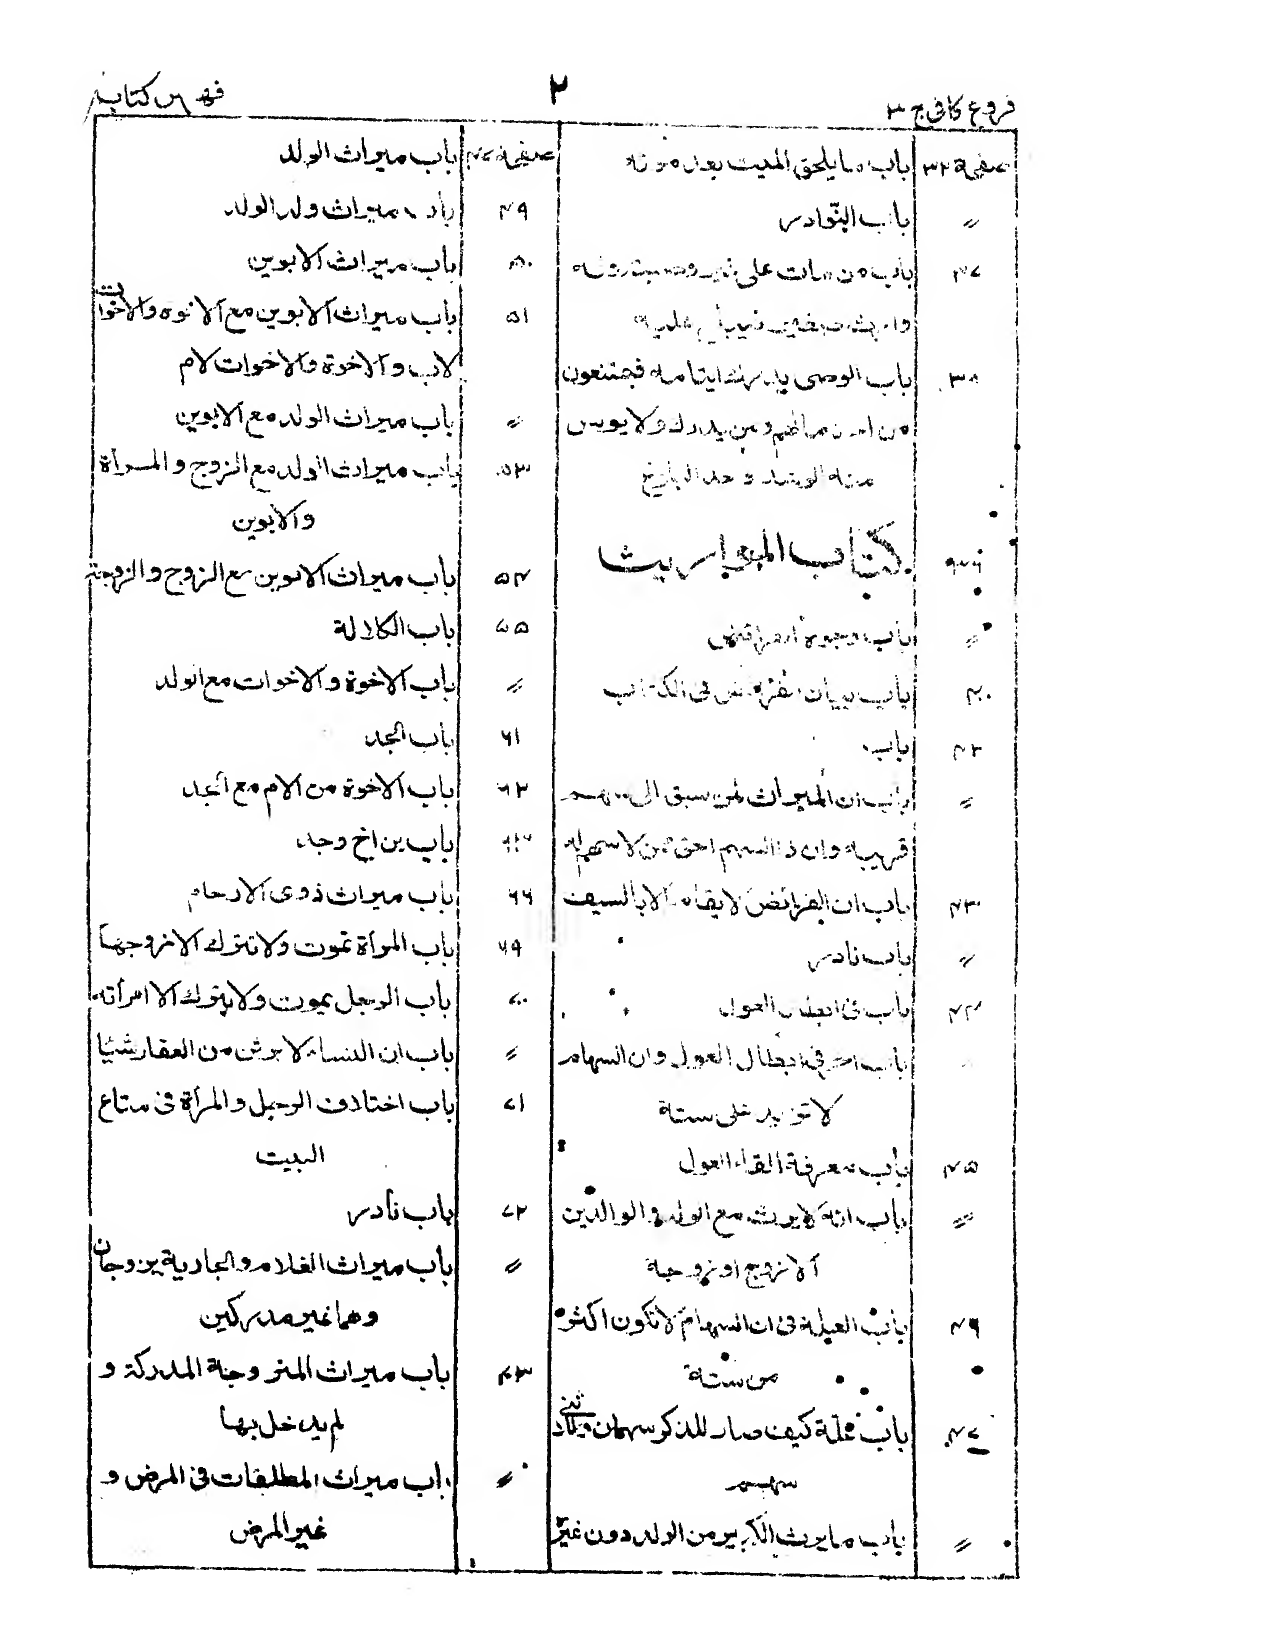 فروع كافى ج ٣
٢
فهرس كتاب
صفحة ٣٢ باب ما يلحق الميت بعد موته
〃 باب النوادر
باب من مات على غير وصية
٣٨ باب الوصى يدرك ايتامه فيمتنعون
من اخذ مالهم ومن يدرك ولا يونس
منه الرشد وحد البلوغ
كتاب المواريث
〃 باب وجوه الفرائض
۴٠ باب بيان الفرائض فى الكتاب
۴٢ باب
〃 باب ان الميراث لمن سبق الى سهم
قريبه وان ذا السهم احق ممن لا سهم له
۴٣ باب ان الفرائض لا يقام الا بالسيف
〃 باب نادر
باب فى ابطال العول
باب اخر فى ابطال العول وان السهام
لا تزيد على ستة
۴۵ باب معرفة القاء العول
〃 باب انه لا يرث مع الولد والوالدين
الا زوج او زوجة
۴۶ باب العلة فى ان السهام لا تكون اكثر
من ستة
۴٧ باب علة كيف صار للذكر سهمان وللانثى
سهم
〃 باب ما يرث الكبير من الولد دون غيره
صفحة باب ميراث الولد
۴٩ باب ميراث ولد الولد
۵٠ باب ميراث الابوين
۵١ باب ميراث الابوين مع الاخوة والاخوات
لاب والاخوة والاخوات لام
〃 باب ميراث الولد مع الابوين
۵٣ باب ميراث الولد مع الزوج والمرأة
والابوين
۵۴ باب ميراث الابوين مع الزوج والزوجة
۵۵ باب الكلالة
〃 باب الاخوة والاخوات مع الولد
۶١ باب الجد
۶٣ باب الاخوة من الام مع الجد
۶۴ باب ابن اخ وجد
۶۶ باب ميراث ذوى الارحام
۶٩ باب المرأة تموت ولا تترك الا زوجها
٧٠ باب الرجل يموت ولا يترك الا امرأته
〃 باب ان النساء لا يرثن من العقار شيئا
٧١ باب اختلاف الرجل والمرأة فى متاع
البيت
٧٢ باب نادر
〃 باب ميراث الغلام والجارية يزوجان
وهما غير مدركين
٧٣ باب ميراث المتزوجة المدركة و
لم يدخل بها
〃 باب ميراث المطلقات فى المرض و
غير المرض